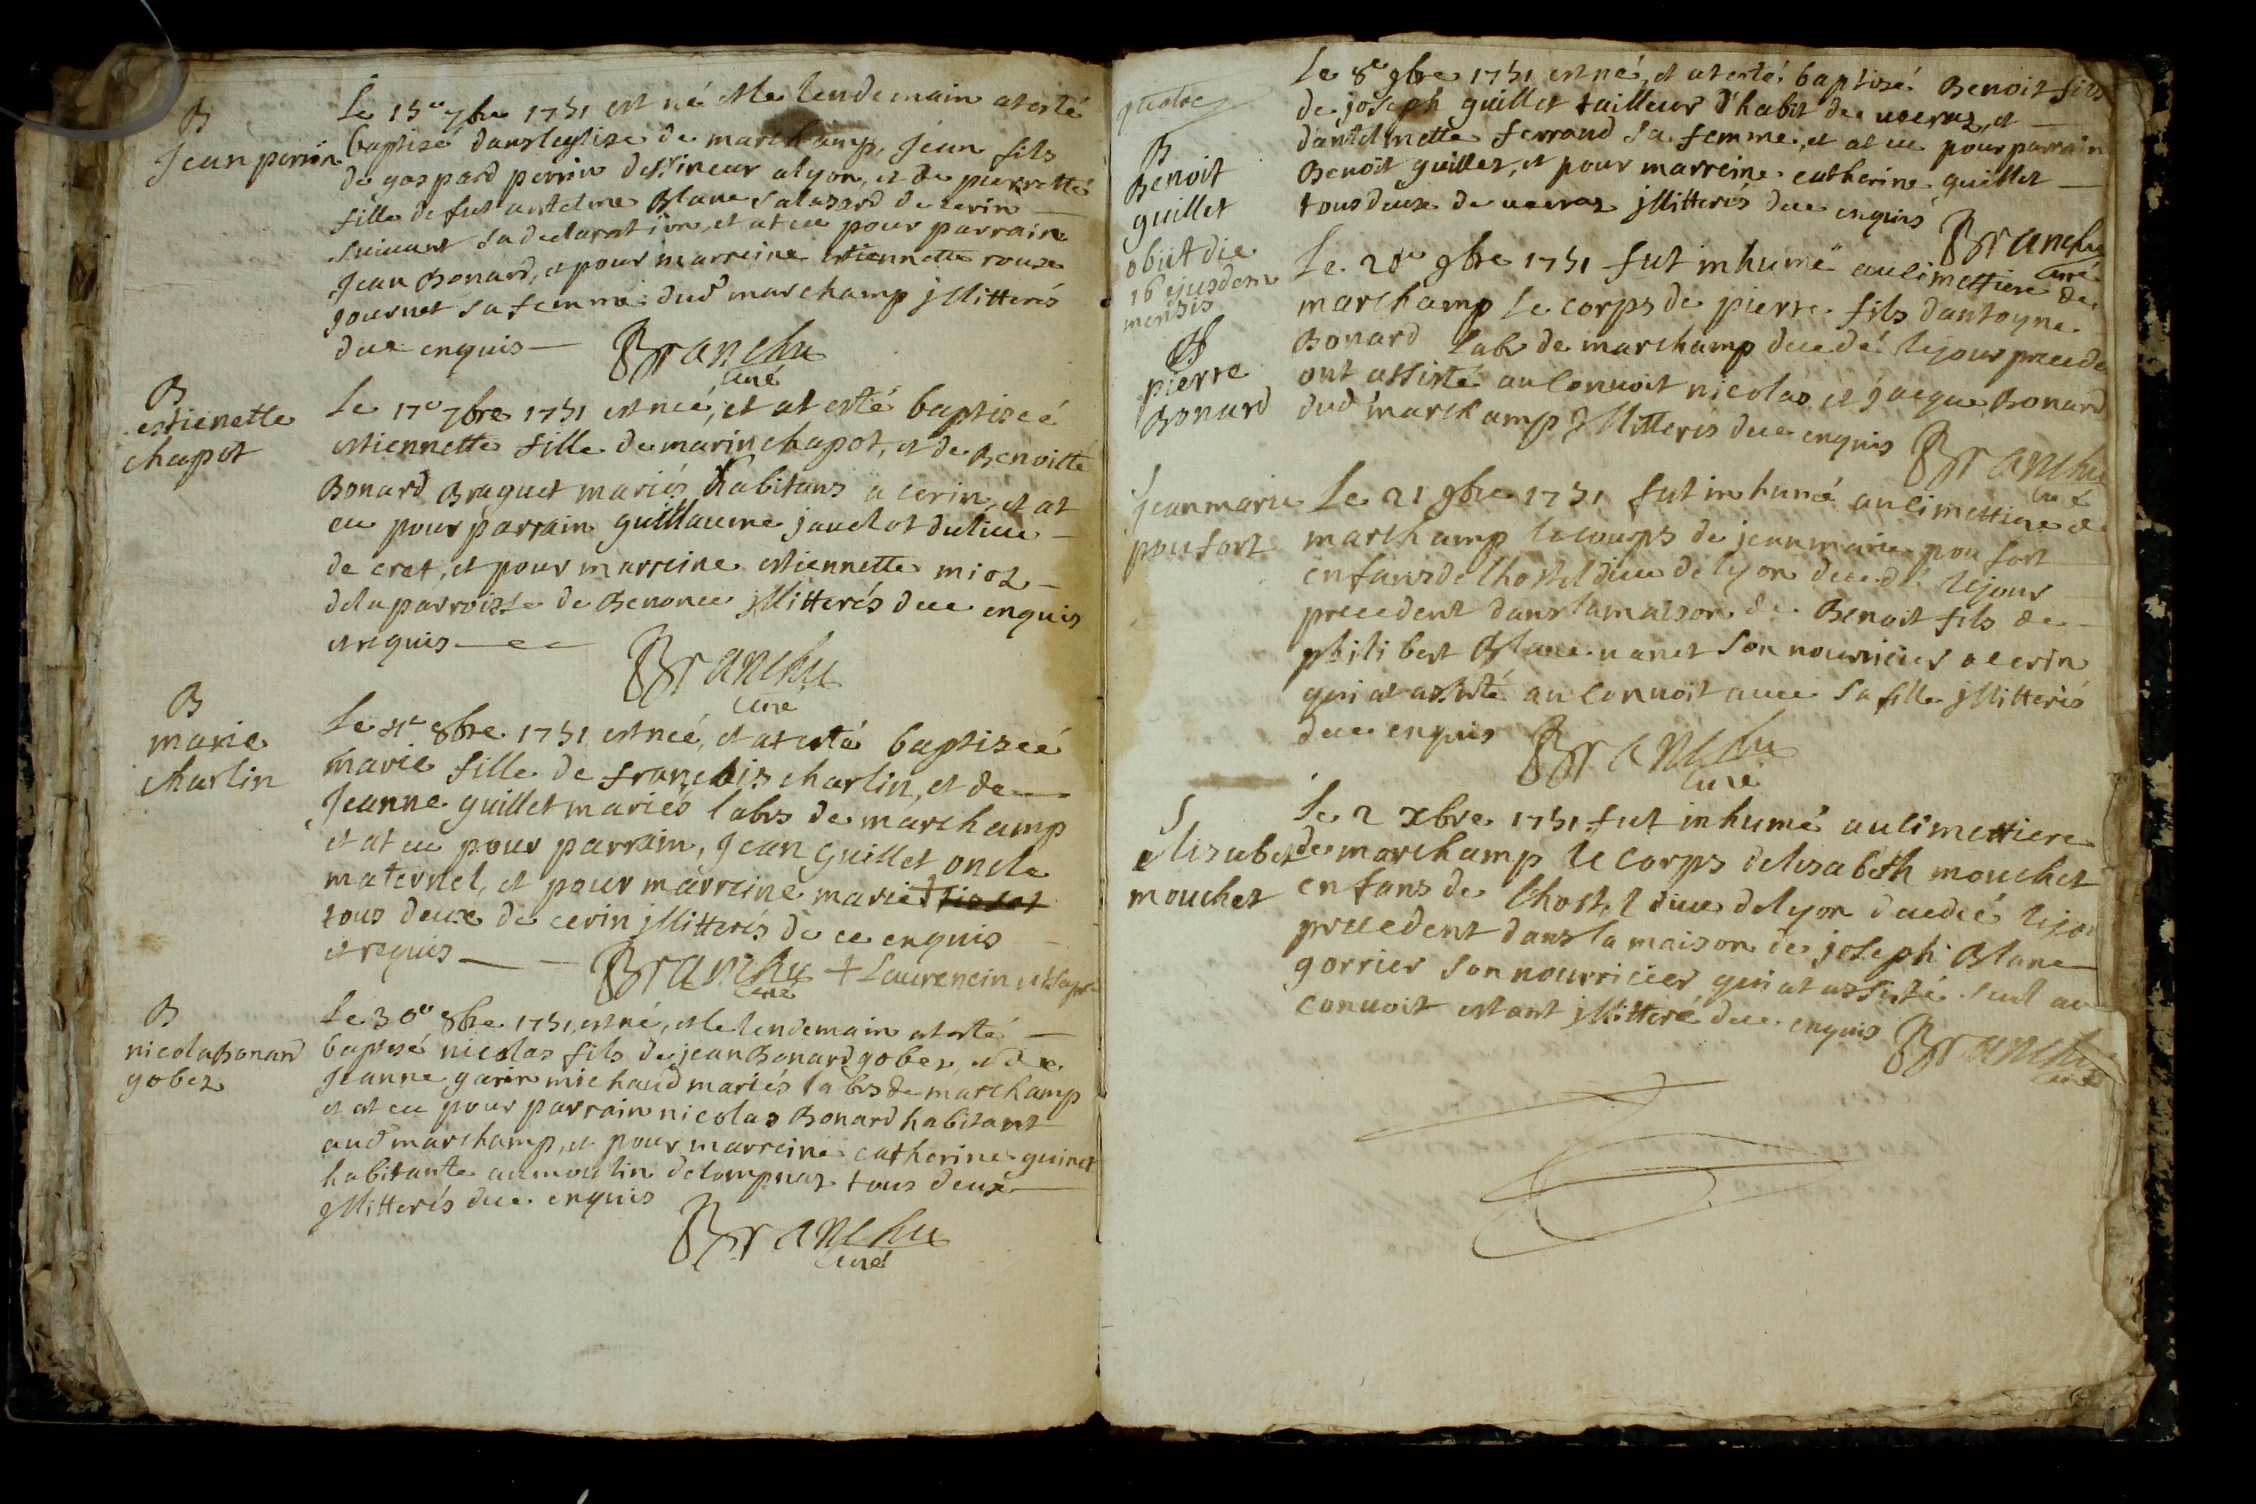 B
Jean perrin
Le 15e 7bre 1751 est né et le lendemain at esté
baptisé dans leglise de marchamp, Jean fils
de gaspard perrin dessineur a lyon, et de pierrette
fille de fut antelme Blanc salazard de cerin
suivant sa declaration, et at eu pour parrain
Jean Bonard, et pour marreine estiennette roux
journet sa femme dud marchamp jllitterés
de ce enquis Branchu
curé
B
estienette
chapot
Le 17e 7bre 1751 est neé, et at esté baptiseé
estiennette fille de marin chapot, et de Benoitte
Bonard Braguet mariés habitans a cerin, et at
eu pour parrain guilllaume jauclot du lieu
de cret, et pour marreine estiennette mioz
de la parroisse de Benonce jllitterés de ce enquis
et requis Branchu
curé
B
marie
charlin
Le 4e 8bre 1751 est neé, et at esté baptiseé
marie fille de franc̨ois charlin, et de
Jeanne guillet mariés labrs de marchamp
et at eu pour parrain, Jean guillet oncle
maternel, et pour marreine marie +
tous deux de cerin jllitterés de ce enquis
et requis Branchu + Laurencin
curé
B
nicola Bonard
gobez
Le 30e 8bre 1751 est né, et le lendemain at esté
baptisé nicolas fils de jean Bonard gobez, et de
Jeanne garin michaud mariés labrs de marchamp
et at eu pour parrain nicolas Bonard habitant
aud marchamp, et pour marreine catherine guinet
habitante au moulin de lompnaz tous deux
jllitterés de ce enquis
Branchu
curé
B
Benoit
guillet
obiit die
16 ejusdem
mensis
Le 8e 9bre 1751 est né, et at esté baptisé Benoit fils
de joseph guillet tailleur d'habit de ueeraz, et
dantelmette ferrand sa femme, et at eu pour parrain
Benoit guillet, et pour marreine catherine guillet
tous deux de ueeraz jllitterés de ce enquis
Branchu
curé
S
pierre
Bonard
Le 20e 9bre 1751 fut inhumé au cimettiere de
marchamp le corps de pierre fils dantoyne
Bonard labr de marchamp decedé le jour precede
ont assisté au convoit nicolas et jacque Bonard
dud marchamp jllitterés de ce enquis Branchu
curé
S
Jean marie
pou fort
Le 21 9bre 1751 fut inhumé au cimettiere de
marchamp le courps de jean marie pou fort
enfans de lhostel dieu de lyon decedé le jour
precedent dans la maison de Benoit fils de
philibert Blanc nanet son nourricier a cerin
qui at assisté au convoit avec sa fille jllitterés
de ce enquis Branchu
curé
S
elisabet
mouchet
Le 2 xbre 1751 fut inhumé au cimettiere
de marchamp le corps delisabeth mouchet
enfans de lhostel dieu de lyon decedeé le jou
precedent dans la maison de joseph Blanc
gorrier son nourricier qui at assisté seul au
convoit estant jllitteré de ce enquis Branchu
curé